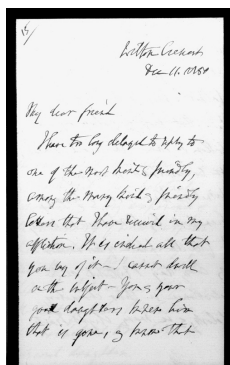 Wilton Crescent
Dec 11. 1854
My dear friend
I have too long delayed to reply to
one of the most kind & friendly,
among the many kind & friendly
letters that I have received in my
affliction. It is indeed all that
you say of it - I cannot dwell
on the subject. You & your
good daughters knew him
that is gone, & know that